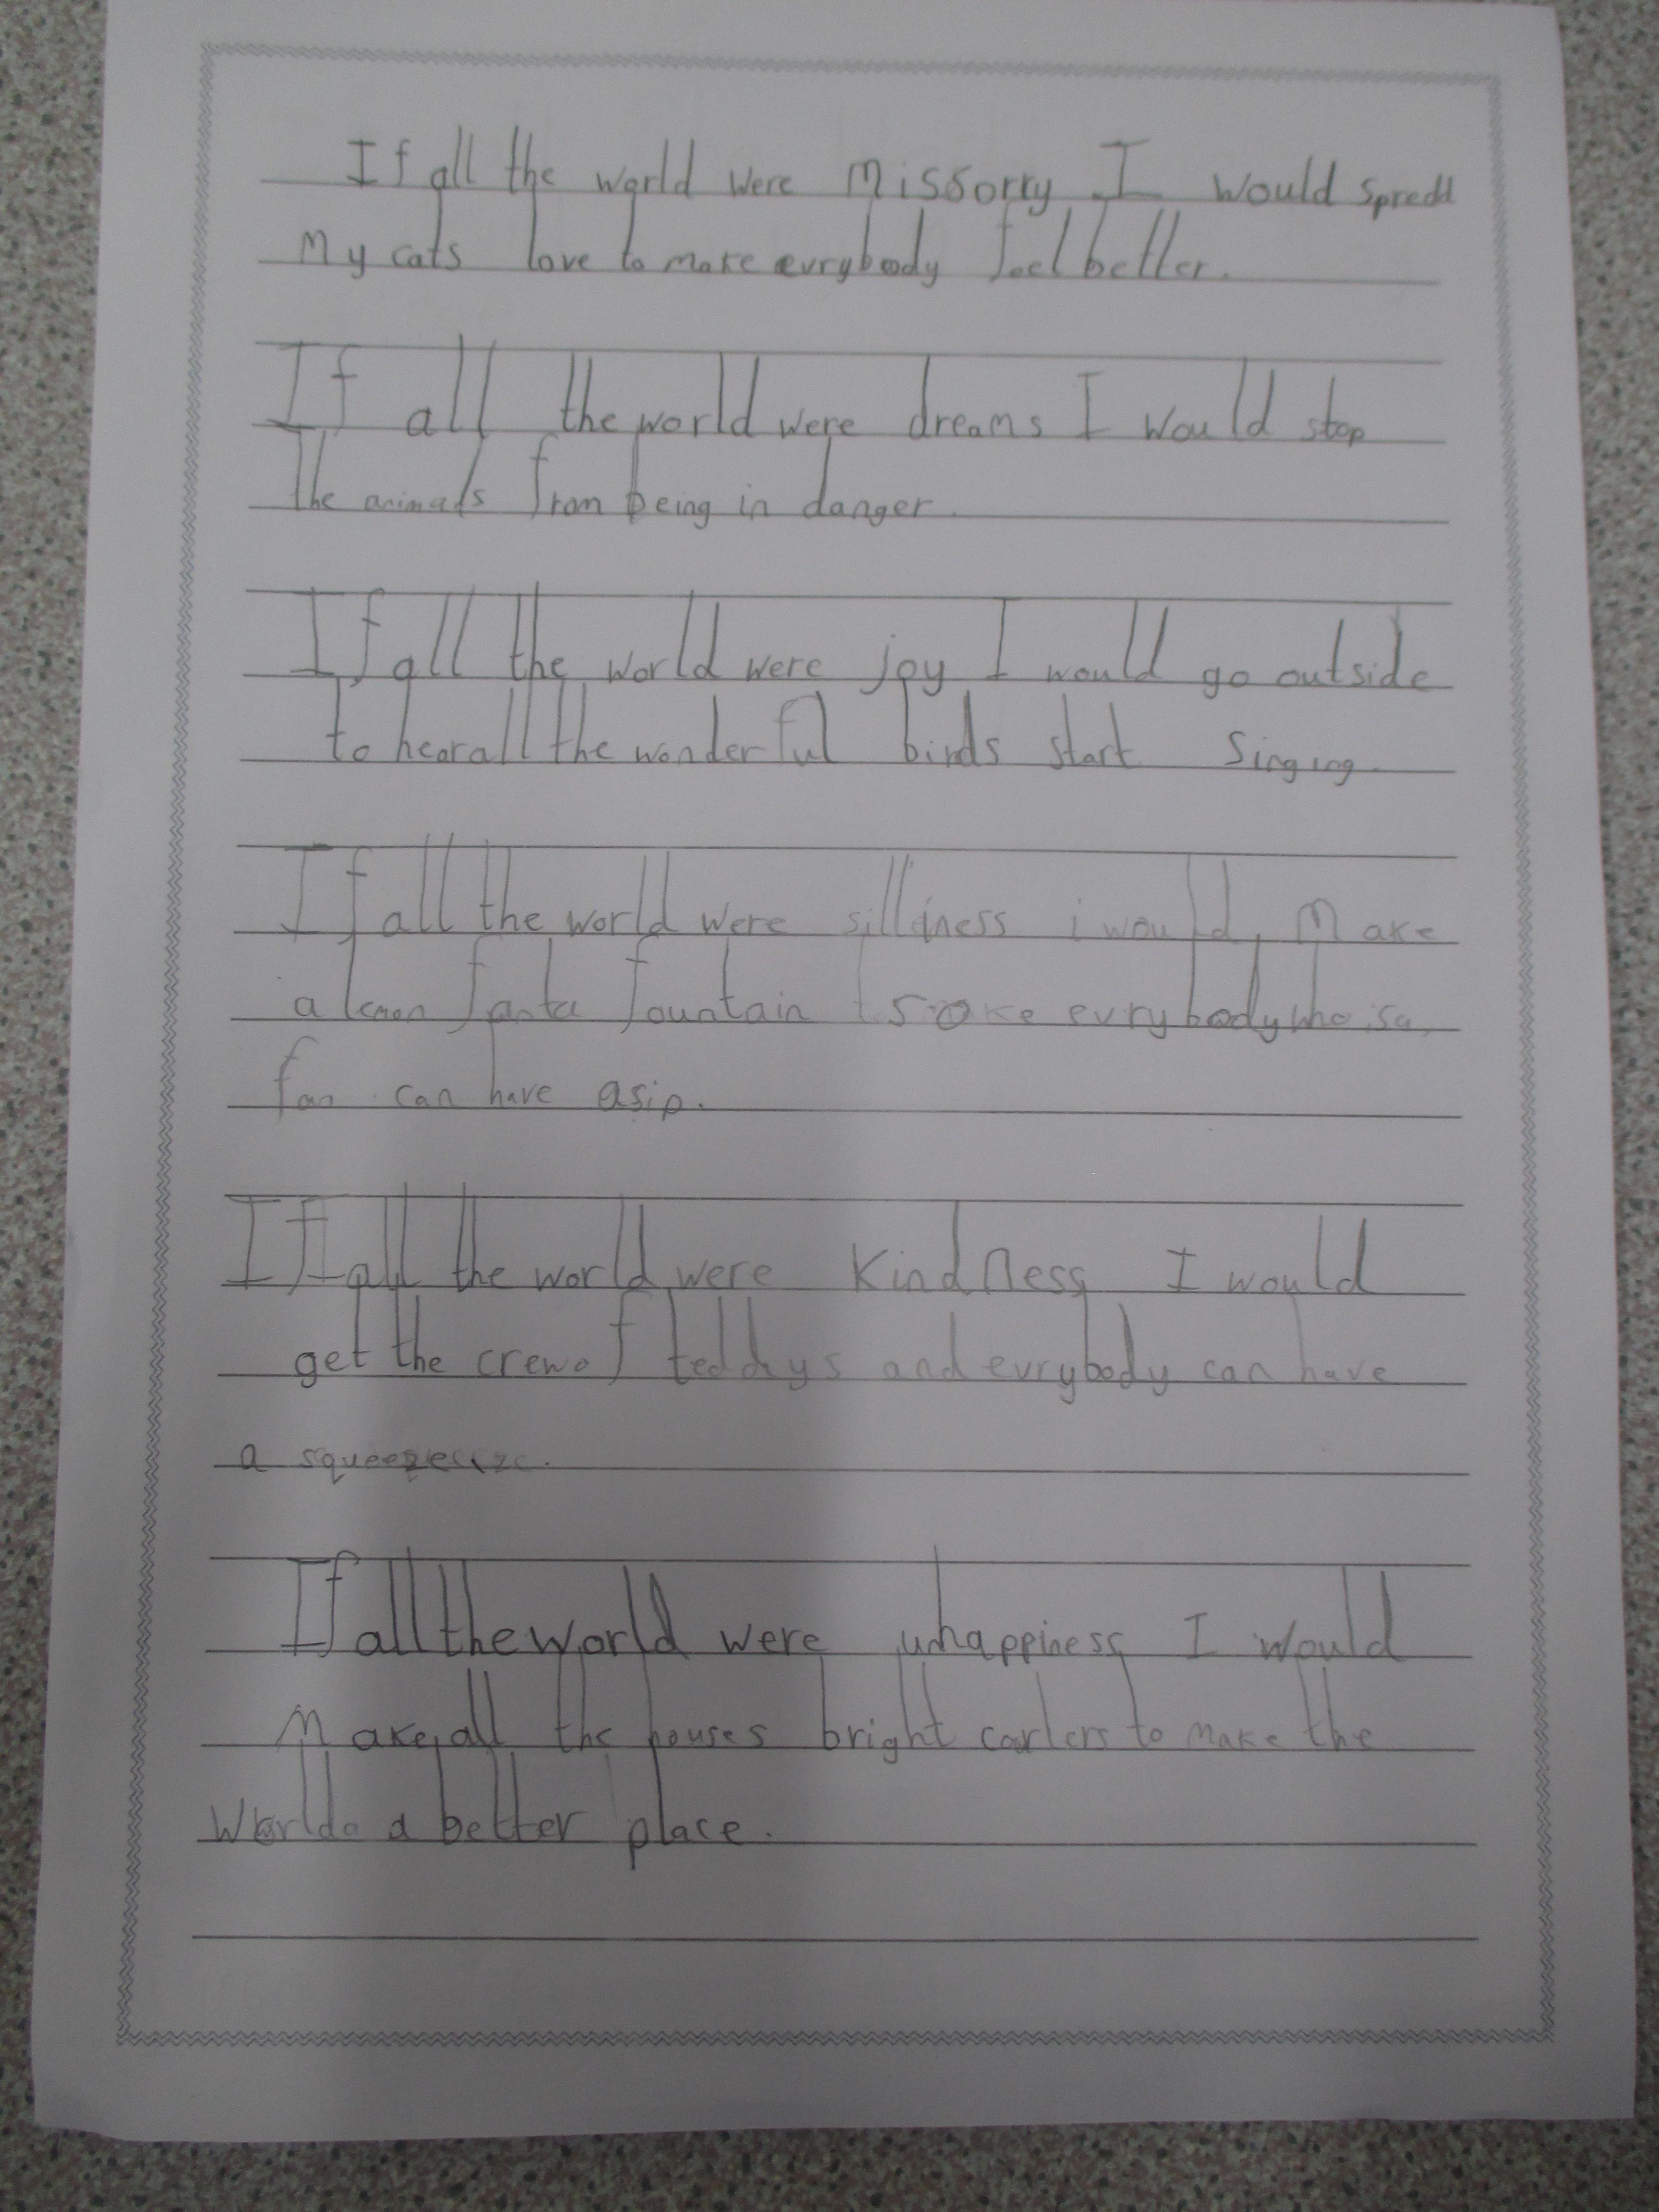 If all the world were Missorry I would spredd
My cats love to make evrybody feel better.
If all the world were dreams I would stop
The animals from being in danger.
If all the world were joy I would go outside
to hear all the wonderful birds start Singing.
If all the world were silliness i would Make
a lemon fanta fountain evrybody who is a
fan can have a sip.
If all the world were Kindness I would
get the crew of teddys and evrybody can have
a
If all the world were unhappiness I would
Make all the houses bright to make the
a better place.